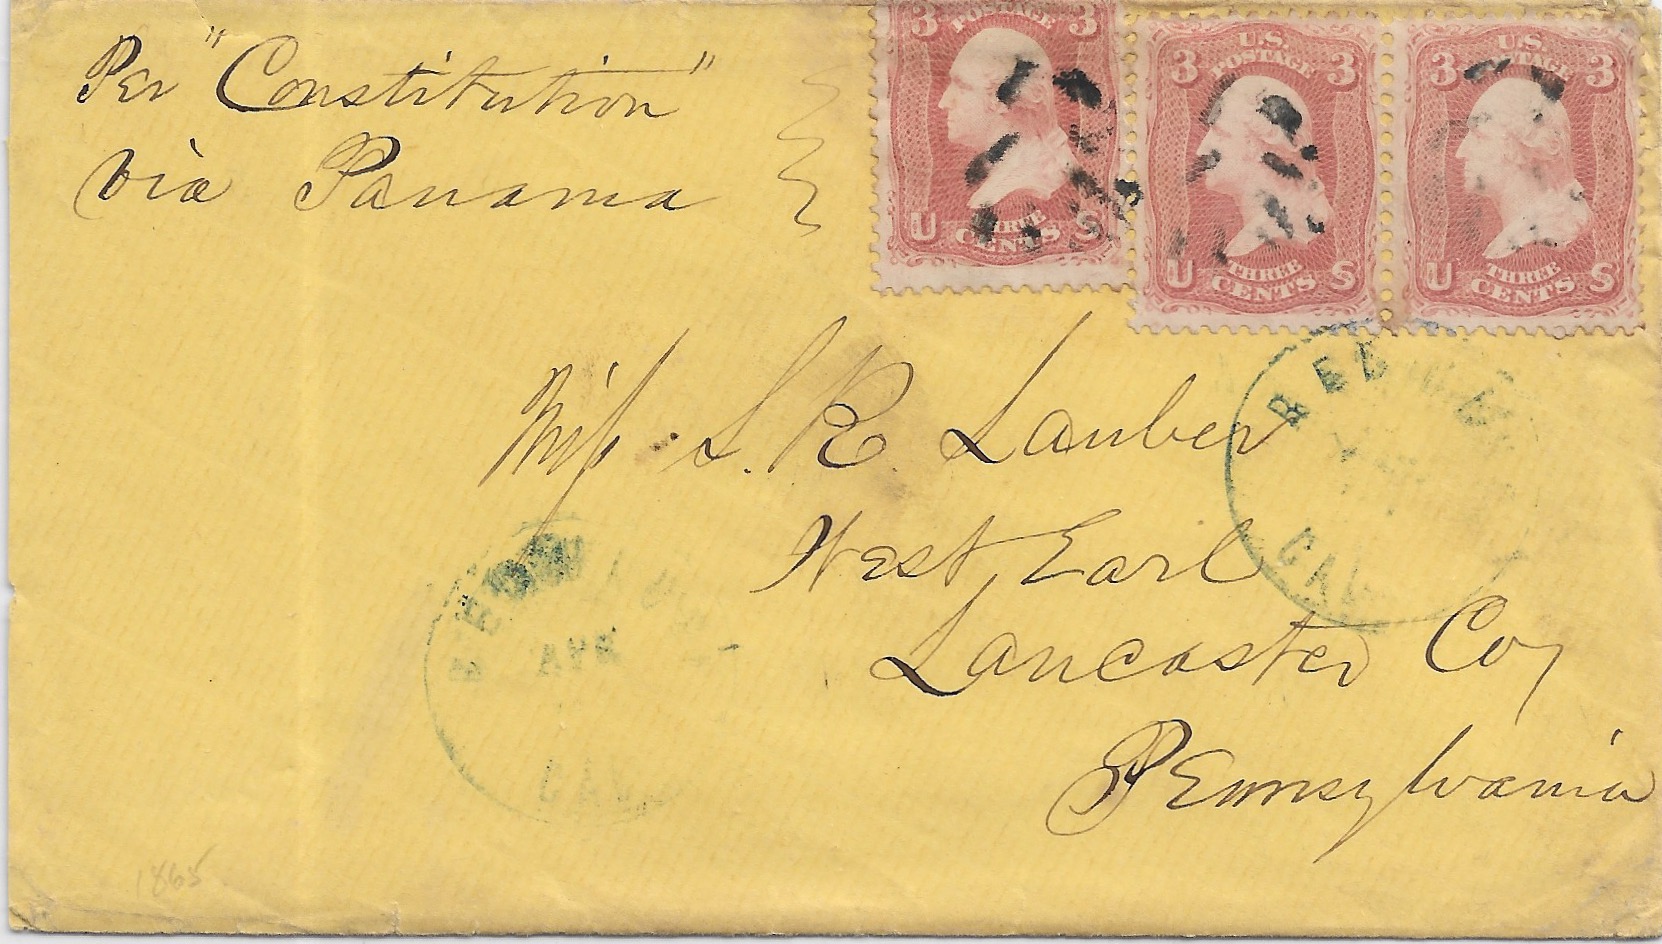 Per "Constitution"
via Panama
3 POSTAGE 3
U THREE S
CENTS
U.S.
3 POSTAGE 3
U THREE S
CENTS
U.S.
3 POSTAGE 3
U THREE S
CENTS
Miss S. R. Lauber
West Earl
Lancaster Co,
Pennsylvania
CAL
APR
CAL
1865